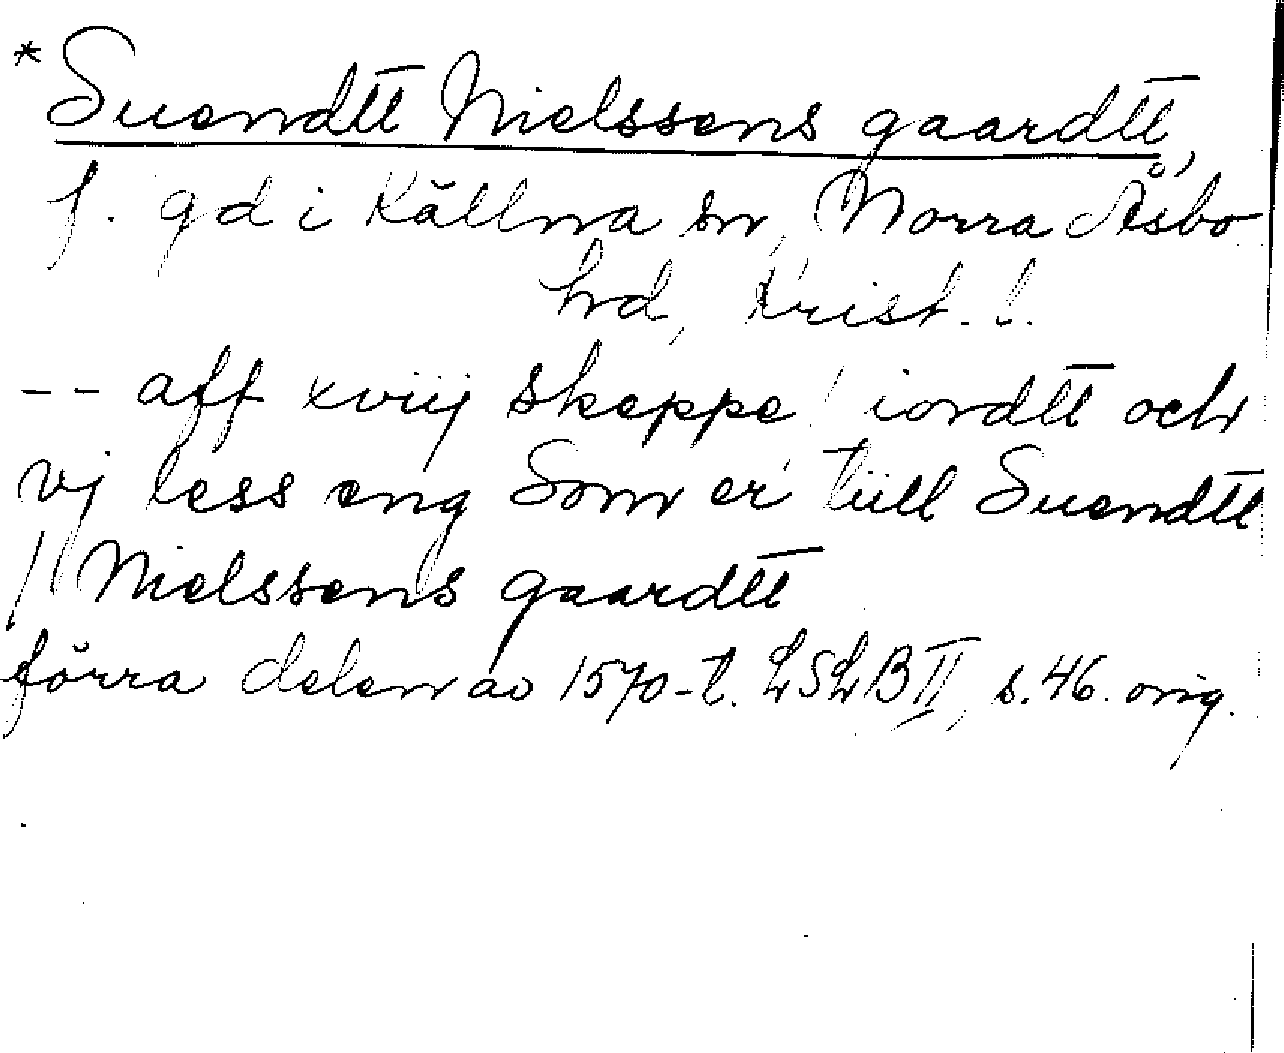 * Suendtt Nielssens gaardtt,
f. gd i Källna sn, Norra Åsbo
hd, Krist. l.
-- aff xviij skeppe / iordtt och
vj less eng Som er tiill Suendtt
/ Nielssens gaardtt
förra delen av 1570-t. LSLB II, s. 46. orig.